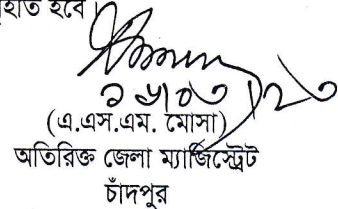 হবে।
(এ.এস.এম. মোসা)
অতিরিক্ত জেলা ম্যাজিস্ট্রেট
চাঁদপুর